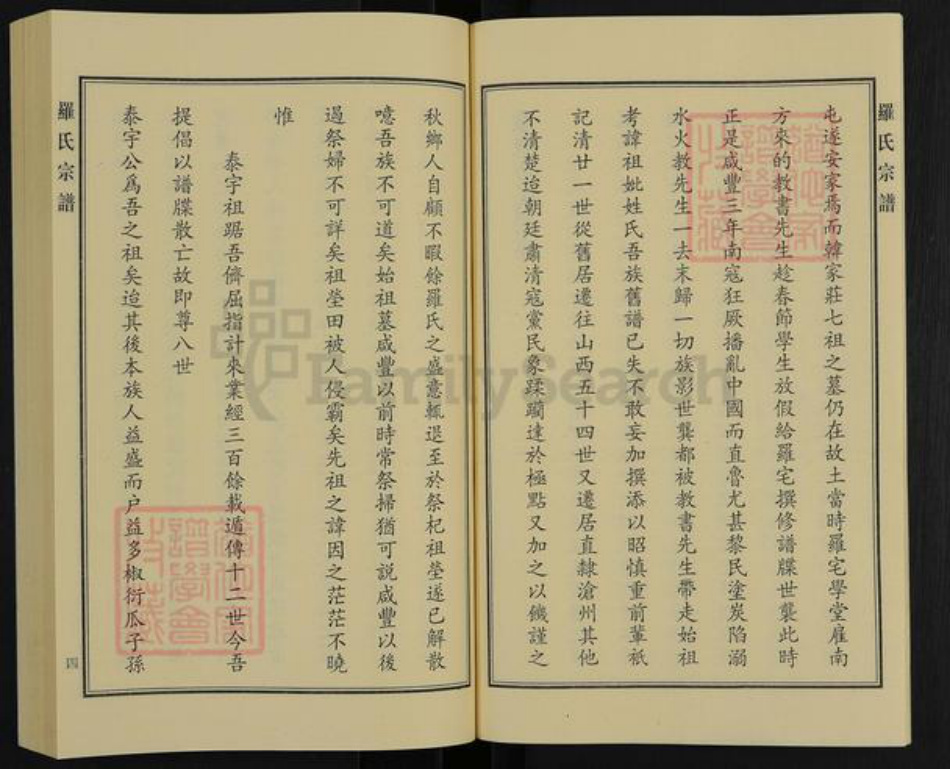 羅氏宗譜
屯遂安家焉而韓家莊七祖之墓仍在故土當時羅宅學堂雇南
方來的教書先生趁春節學生放假給羅宅撰修譜牒世襲此時
正是咸豐三年南寇狂厥播亂中國而直魯尤甚黎民塗炭陷溺
水火教先生一去末歸一切族影世龔都被教書先生帶走始祖
考諱祖妣姓氏吾族舊譜已失不敢妄加撰添以昭慎重前輩祇
記清廿一世從舊居遷往山西五十四世又遷居直隸滄州其他
不清楚迨朝廷肅清寇黨民象蹂躪達於極點又加之以饑謹之
秋鄉人自顧不暇餘羅氏之盛意輒退至於祭杞祖塋遂已解散
噫吾族不可道矣始祖墓咸豐以前時常祭掃猶可説咸豐以後
過祭婦不可詳矣祖塋田被人侵霸矣先祖之諱因之茫茫不曉
惟
泰宇祖踞吾儕屈指計來業經三百餘載遁傳十二世今吾
提倡以譜牒散亡故即尊八世
泰宇公爲吾之祖矣迨其後本族人益盛而户益多椒衍瓜子孫
羅氏宗譜
四
FamilySearch